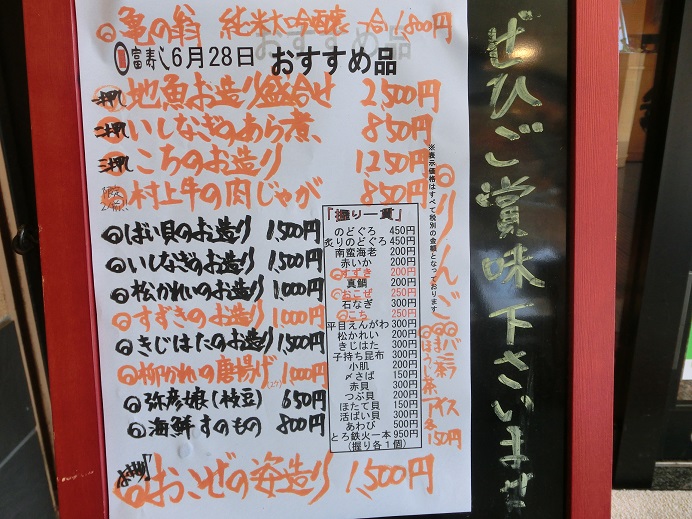 ◎亀の翁 純米大吟醸 一合1,800円
富寿し 6月28日 おすすめ品
一押し 地魚お造り盛合せ 2,500円
二押し いしなぎのあら煮 850円
三押し こちのお造り 1250円
村上牛の肉じゃが 850円
◎ばい貝のお造り 1,500円
◎いしなぎのお造り 1,500円
◎松かれいのお造り 1,000円
◎すずきのお造り 1,000円
◎きじはたのお造り 1,500円
◎柳かれいの唐揚げ 1,000円
◎弥彦娘(枝豆) 650円
◎海鮮すのもの 800円
◎おこぜの姿造り 1,500円
※表示価格はすべて税別の金額となっております
「握り一貫」
のどぐろ 450円
炙りのどぐろ 450円
南蛮海老 200円
赤いか 200円
◎すずき 200円
真鯛 200円
◎おこぜ 250円
石なぎ 300円
◎こち 250円
平目えんがわ 300円
松かれい 200円
きじはた 300円
子持ち昆布 300円
小肌 200円
〆さば 150円
赤貝 300円
つぶ貝 200円
ほたて貝 150円
活ばい貝 300円
あわび 500円
とろ鉄火一本 950円
(握り各1個)
◎りんご
◎バニラ
◎抹茶
◎ほうじ茶
アイス
各150円
ぜひご賞味下さいませ